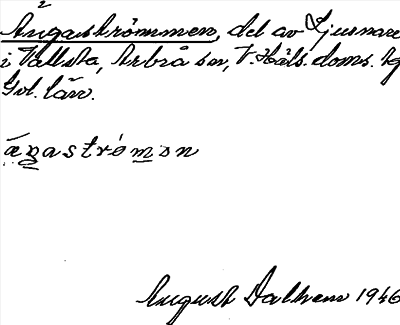 Ängaströmmen, del av Ljusnan
i Vallsta, Arbrå sn, V. Häls. doms. hg
Gvl. län.
ængaströmən
August Dalhem 1946